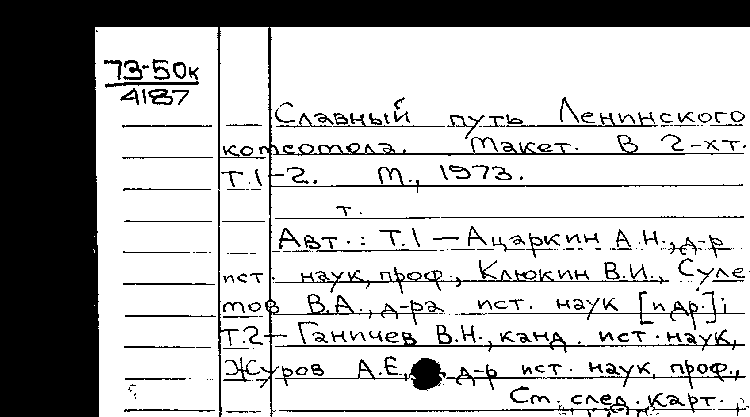 73-50к
4187
Славный путь Ленинского
комсомола. Макет. В 2-х т.
Т.1-2. М., 1973.
т.
Авт.: Т.1 — Ацаркин А.Н., д-р
ист. наук, проф., Клюкин В.И., Суле-
мов В.А., д-ра ист. наук [и др.];
Т.2 — Ганичев В.Н., канд. ист. наук,
Журов А.Е., д-р ист. наук, проф.,
См. след. карт.